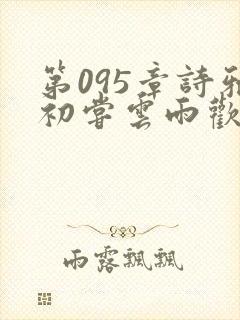 第095章詩雅
初嘗雲雨歡
雨露飄飄